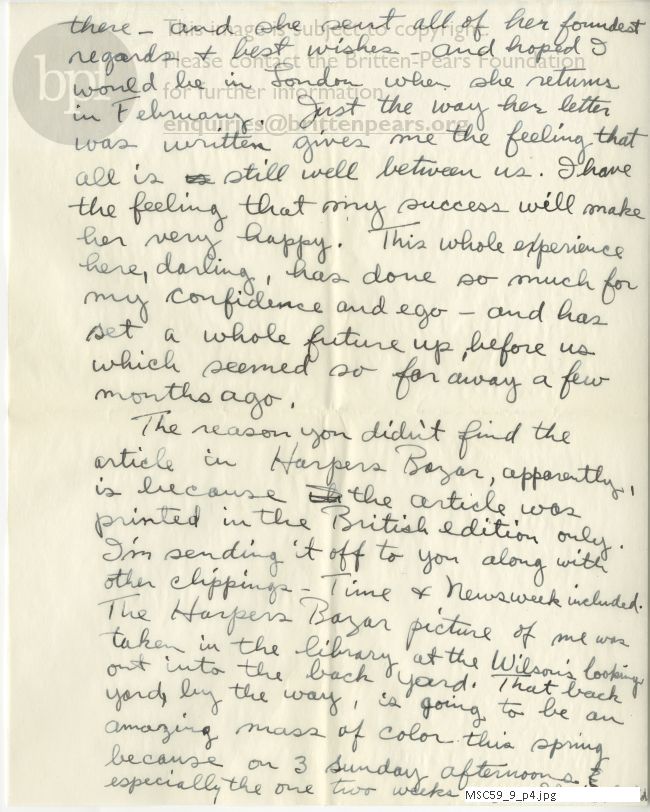 there - and she sent all of her foundest
regards & best wishes - and hoped I
would be in London when she returns
in February. Just the way her letter
was written gives me the feeling that
all is still well between us. I have
the feeling that my success will make
her very happy. This whole experience
here, darling, has done so much for
my confidence and ego - and has
set a whole future up, before us
which seemed so far away a few
months ago.
The reason you didn't find the
article in Harpers Bazar, apparently,
is because the article was
printed in the British edition only.
I'm sending it off to you along with
other clippings - Time & Newsweek included.
The Harpers Bazar picture of me was
taken in the library at the Wilson's looking
out into the back yard. That back
yard, by the way, is going to be an
amazing mass of color this spring
because on 3 Sunday afternoons &
especially the one two weeks
bpi
This image is subject to copyright
Please contact the Britten-Pears Foundation
for further information
enquiries@brittenpears.org
MSC59_9_p4.jpg